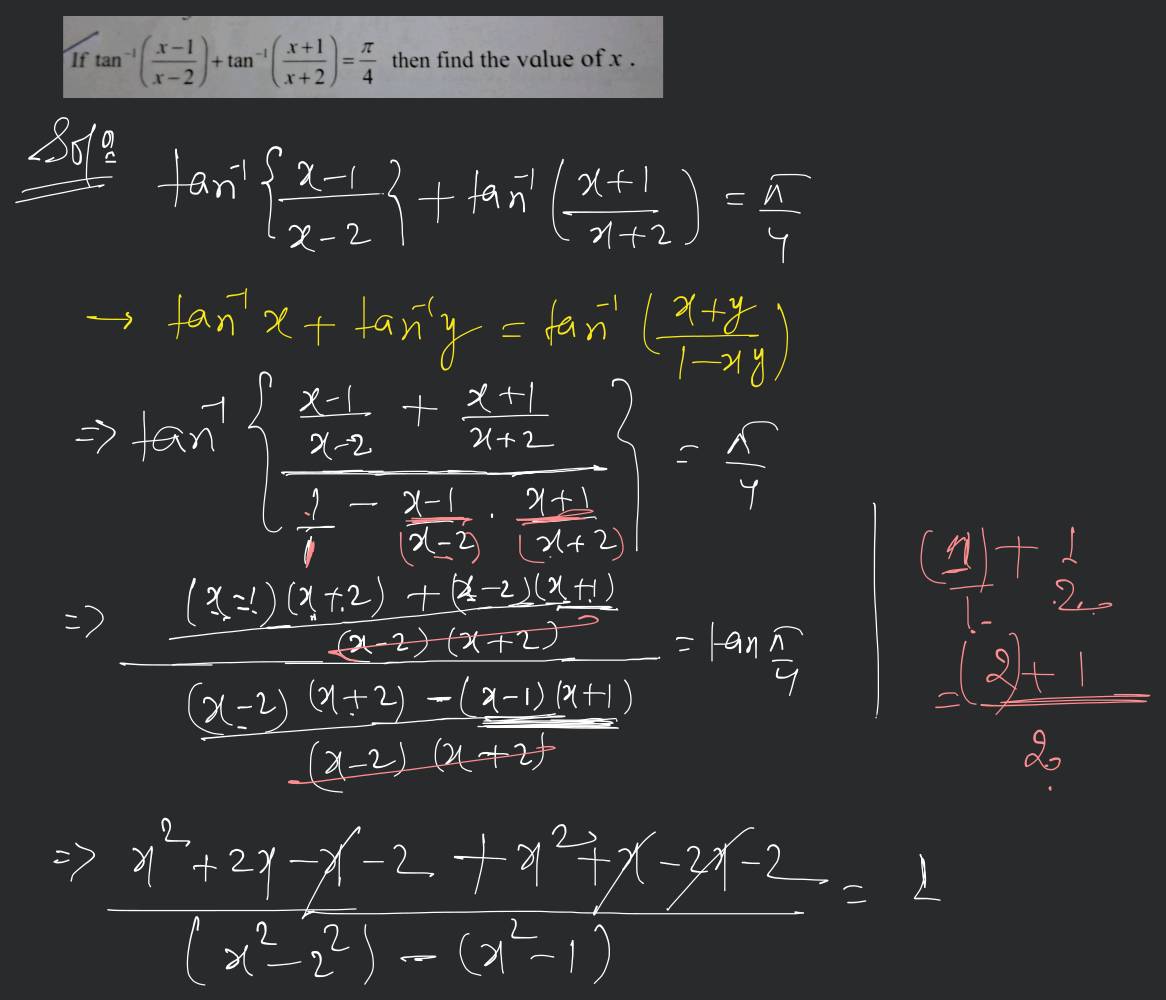 If tan⁻¹((x-1)/(x-2)) + tan⁻¹((x+1)/(x+2)) = π/4 then find the value of x .
Solⁿ
tan⁻¹{(x-1)/(x-2)} + tan⁻¹((x+1)/(x+2)) = π/4
→ tan⁻¹ x + tan⁻¹ y = tan⁻¹((x+y)/(1-xy))
⇒ tan⁻¹{((x-1)/(x-2) + (x+1)/(x+2))/(1/1 - (x-1)/(x-2) · (x+1)/(x+2))} = π/4
⇒ (((x-1)(x+2) + (x-2)(x+1))/((x-2)(x+2)))/(((x-2)(x+2) - (x-1)(x+1))/((x-2)(x+2))) = tan π/4
(1)/1 + 1/2
= ((2)+1)/2
⇒ (x² + 2x - x - 2 + x² + x - 2x - 2)/((x² - 2²) - (x² - 1)) = 1